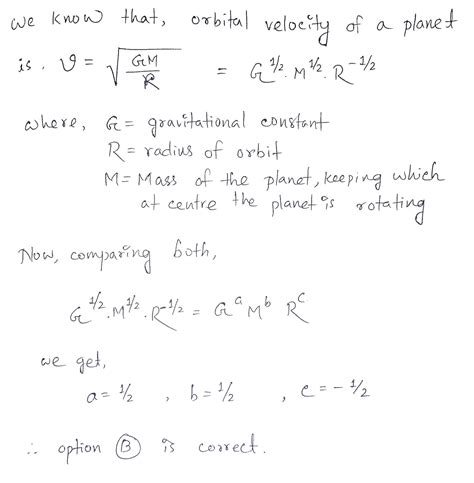 we know that, orbital velocity of a planet
is. v = √(GM/R) = G^1/2. M^1/2. R^-1/2
where, G = gravitational constant
R = radius of orbit
M = Mass of the planet, keeping which
at centre the planet is rotating
Now, comparing both,
G^1/2. M^1/2. R^-1/2 = G^a M^b R^c
we get,
a = 1/2 , b = 1/2 , c = - 1/2
∴ option Ⓑ is correct.